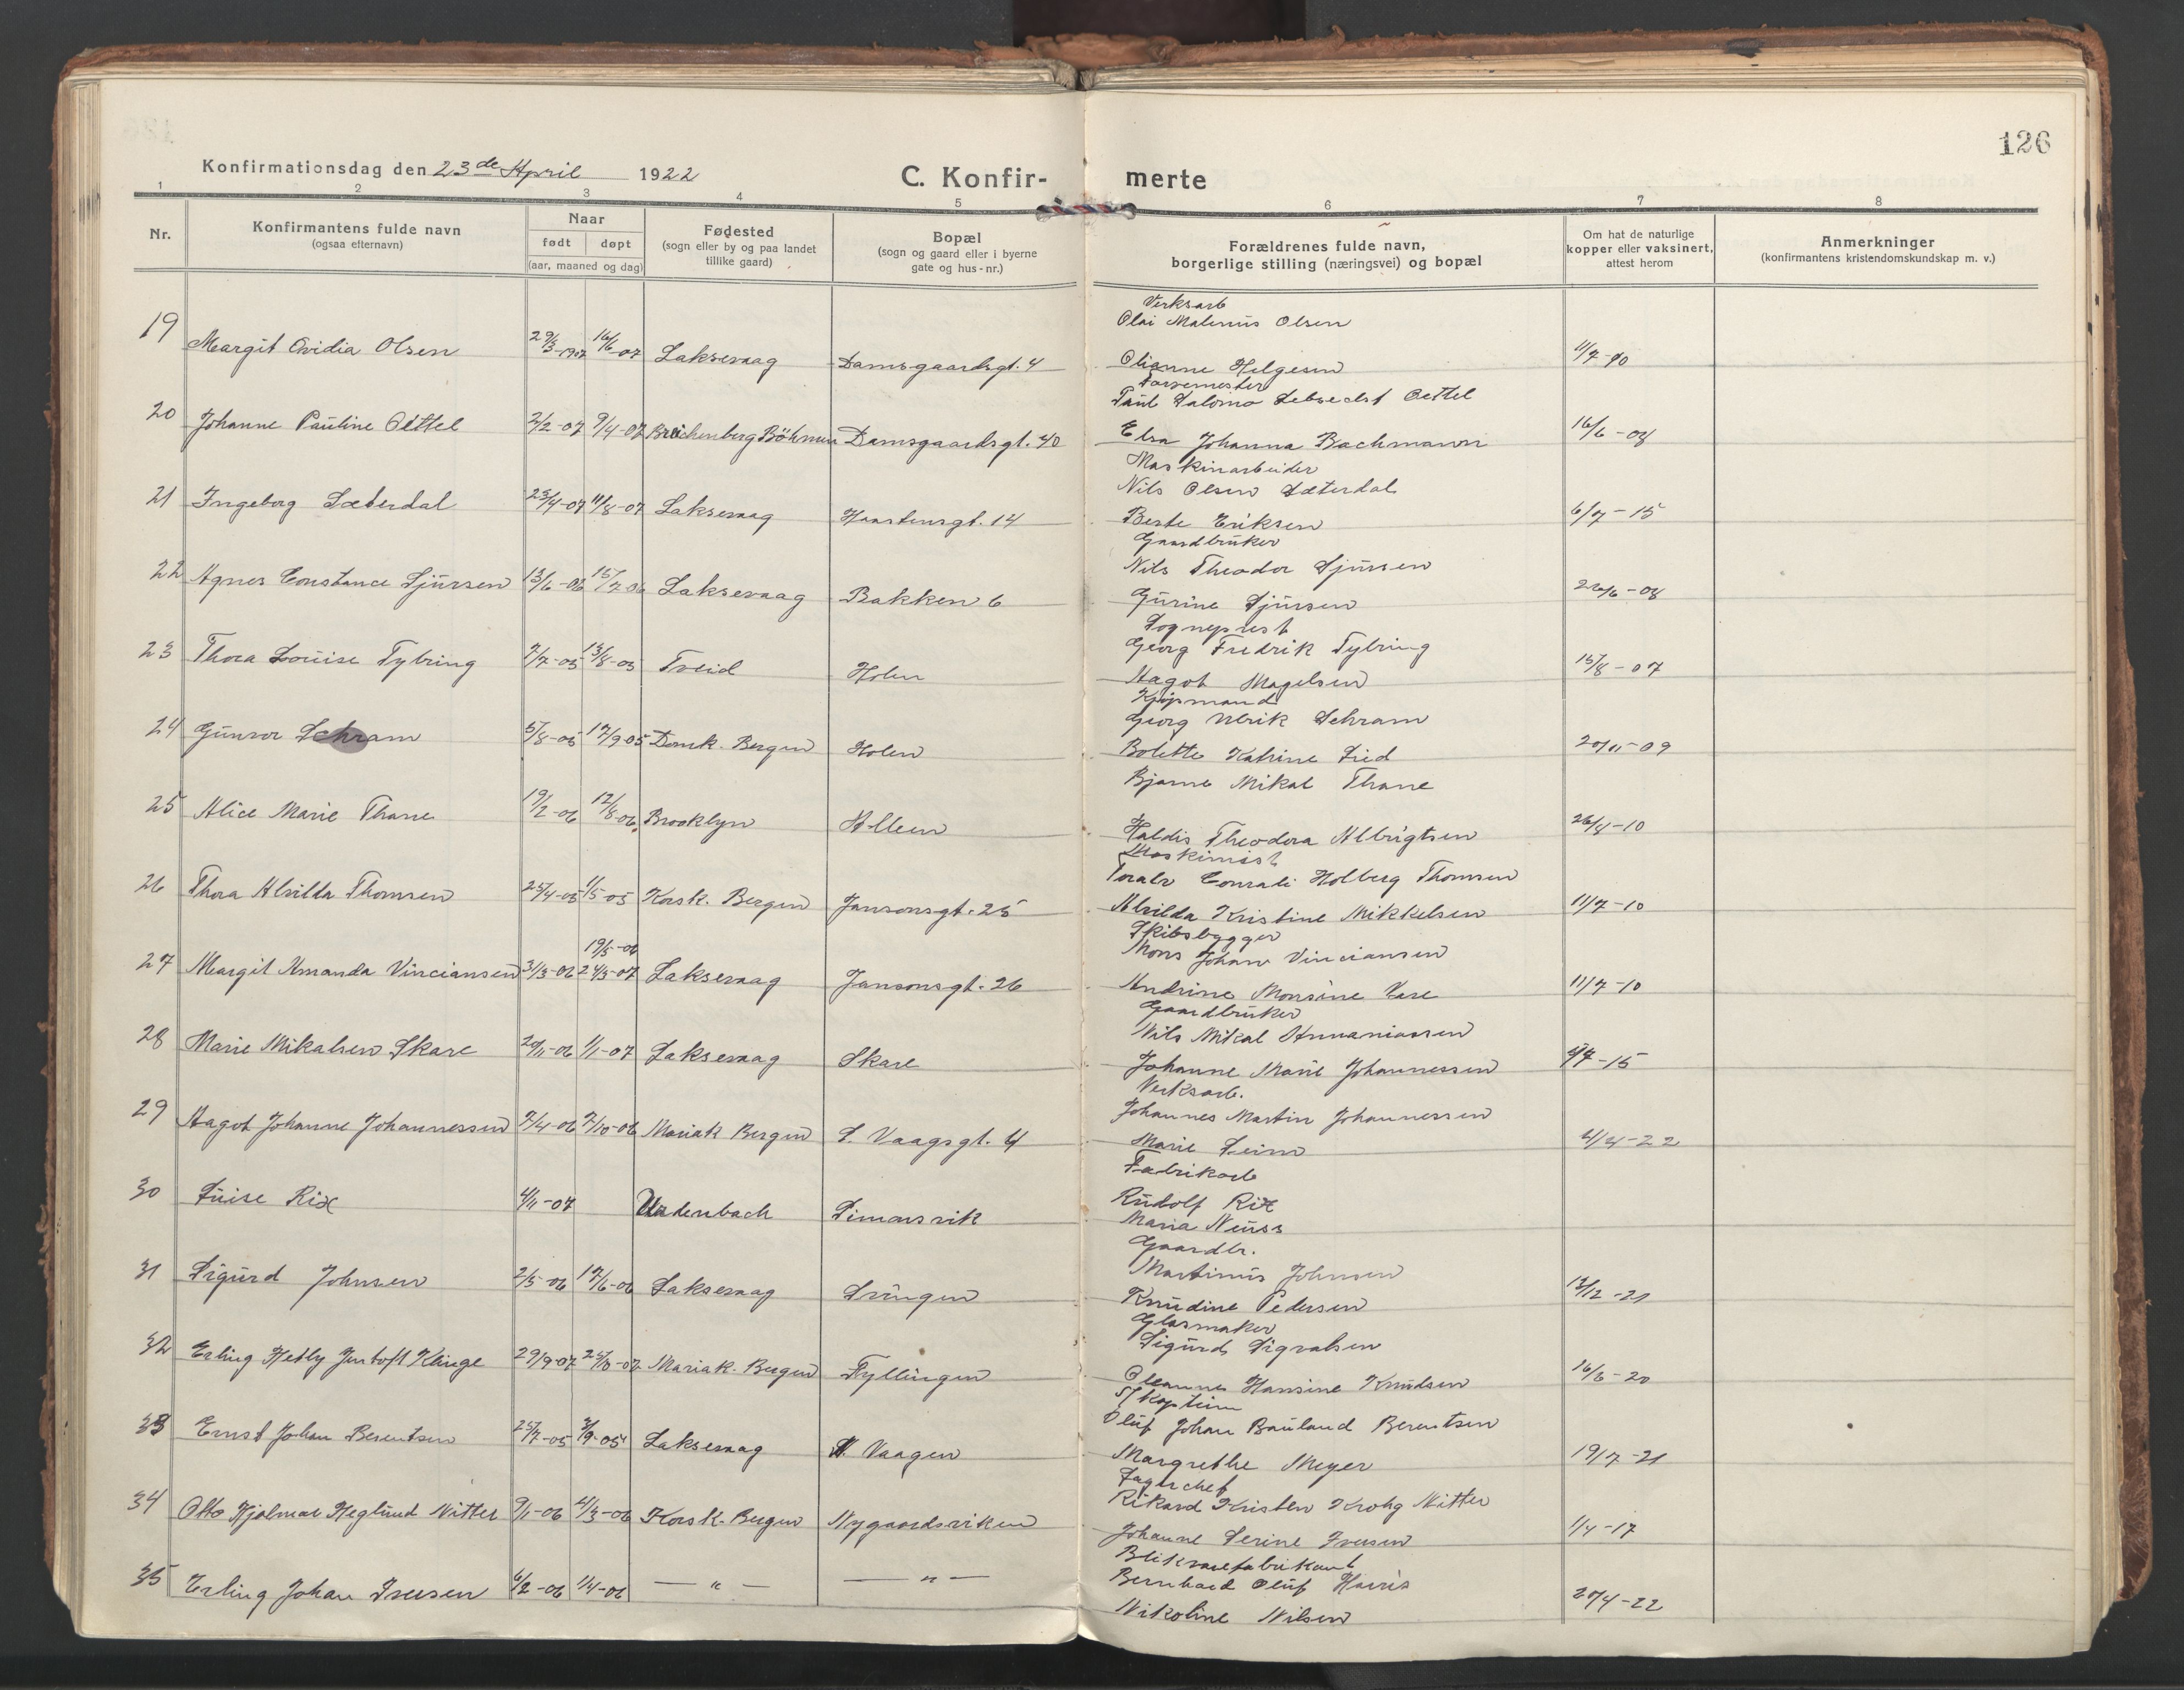 126
Konfirmationsdag den 23de April 1922
C. Konfir- merte
1 2 3 4 5 6 7 8
Nr.
Konfirmantens fulde navn
(ogsaa efternavn)
Naar
født døpt
(aar, maaned og dag)
Fødested
(sogn eller by og paa landet
tillike gaard)
Bopæl
(sogn og gaard eller i byerne
gate og hus-nr.)
Forældrenes fulde navn,
borgerlige stilling (næringsvei) og bopæl
Om hat de naturlige
kopper eller vaksinert,
attest herom
Anmerkninger
(konfirmantens kristendomskundskap m. v.)
Verksarb
Olai Malenius Olsen
19 Margit Ovidia Olsen 29/3-1907 16/6-07 Laksevaag Damsgaardsgt. 4 Olianne Helgesen 11/7-10
Farvemester
Paul Salomo Lebrecht Oettel
20 Johanne Pauline Oettel 2/2-07 9/4-07 Reichenberg Böhmen Damsgaardsgt. 40 Elsa Johanna Bachmann 16/6-08
Maskinarbeider
Nils Olsen Sæterdal
21 Ingeborg Sæterdal 23/4-07 11/8-07 Laksevaag Haastensgt. 14 Berte Eriksen 6/7-15
Gaardbruker
Nils Theodor Sjursen
22 Agnes Constance Sjursen 13/6-06 15/7-06 Laksevaag Bakken 6 Gurine Sjursen 26/6-08
Sogneprest
Georg Fredrik Tybring
23 Thora Louise Tybring 7/7-05 13/8-05 Tveid Holen Aagot Magelsen 15/8-07
Kjøpmand
Georg Ulrik Schram
24 Gunvor Schram 5/8-05 17/9-05 Domk. Bergen Holen Bolette Katrine Lied 20/11-09
Bjarne Mikal Thane
25 Alice Marie Thane 19/2-06 12/8-06 Brooklyn Alleen Haldis Theodora Albrigtsen 26/4-10
Maskinist
Toralv Conradi Holberg Thomsen
26 Thora Alvilda Thomsen 25/4-05 1/5-05 Korsk. Bergen Jansonsgt. 25 Alvilda Kristine Mikkelsen 11/7-10
Skibsbygger
19/5-06
Mons Johan Vinciansen
27 Margit Amanda Vinciansen 31/3-06 24/3-07 Laksevaag Jansonsgt. 26 Andrine Monsine Vare 11/7-10
Gaardbruker
Nils Mikal Annaniassen
28 Marie Mikalsen Skare 20/11-06 1/1-07 Laksevaag Skare Johanne Marie Johannessen 7-15
Verksarb.
Johannes Martin Johannessen
29 Aagot Johanne Johannessen 2/4-06 7/10-06 Mariak Bergen S. Vaagsgt. 4 Marie Leim 4/4-22
Fabrikarb
Rudolf Rix
30 Luise Rix 4/11-07 Undenbach Simonsvik
Maria Neuss
Gaardbr.
Martinus Johnsen
31 Sigurd Johnsen 2/5-06 17/6-06 Laksevaag Lungen Knudine Pedersen 13/12-21
Glasmaker
Sigurd Sigvalsen
32 Erling Hetly Jentoft Klinge 29/9-07 25/10-07 Mariak. Bergen Fyllingen Oleanna Hansine Knudsen 16/6-20
Skaptein
Oluf Johan Bauland Berentsen
33 Ernst Johan Berentsen 25/7-05 3/9-05 Laksevaag N. Vaagen Margrethe Meyer 19/7-21
Lagerchef
Rikard Kristen Krohg Nitter
34 Otto Hjalmar Heglund Nitter 9/1-06 4/3-06 Korsk. Bergen Nygaardsviken Johanne Serine Iversen 1/4-17
Blikvarefabrikant
Bernhard Oluf Harris
35 Erling Johan Iversen 6/2-06 1/4-06 — " — — " — Nikoline Nilsen 20/4-22